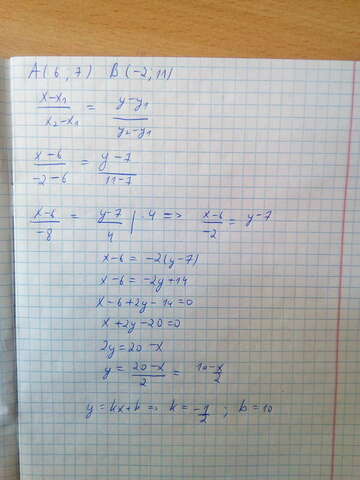 A(6;7) B(-2;11)
x-x₁/x₂-x₁ = y-y₁/y₂-y₁
x-6/-2-6 = y-7/11-7
x-6/-8 = y-7/4 | 4 => x-6/-2 = y-7
x-6 = -2(y-7)
x-6 = -2y+14
x-6+2y-14=0
x+2y-20=0
2y=20-x
y= 20-x/2 = 10-x/2
y=kx+b => k= -1/2 ; b=10